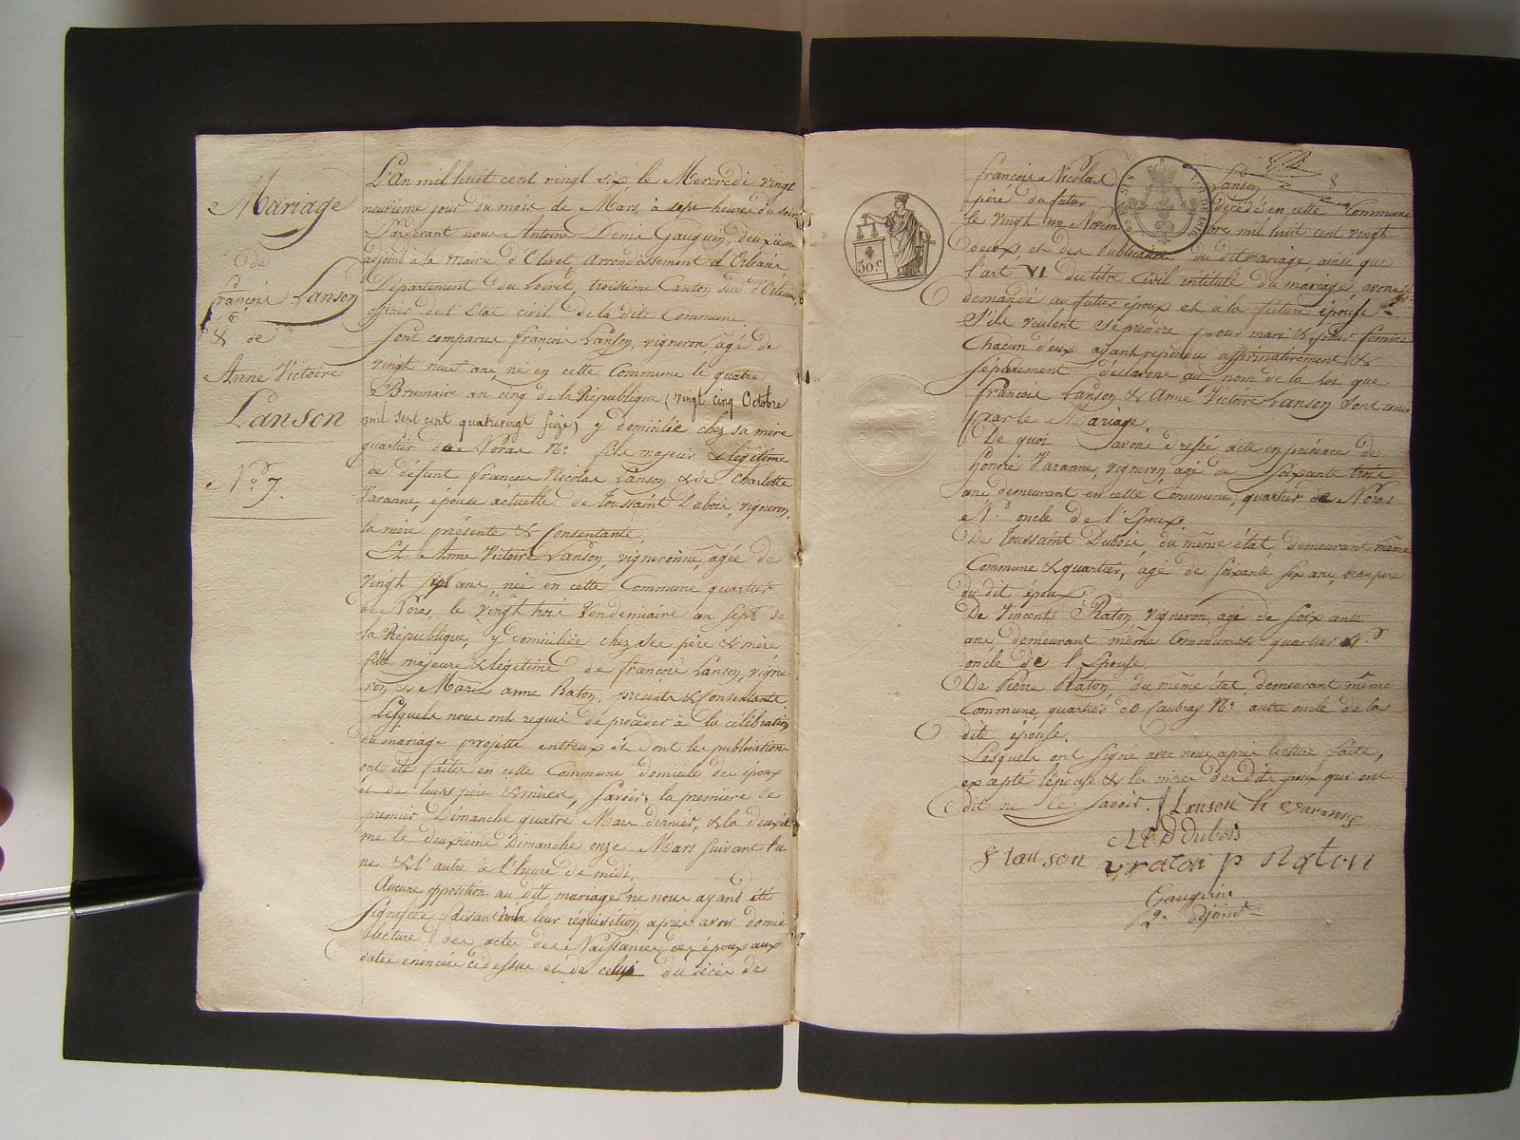 Mariage
de
François Lanson
& de
Anne Victoire
Lanson
N.° 7.
L'An mil huit cent vingt six, le Mercredi vingt
neuvieme jour du mois de Mars, à sept heures du soir
Pardevant nous Antoine Denis Gauguin, deuxième
adjoint à la Mairie d'Olivet, Arrondissement d'Orléans,
Département du Loiret, troisième Canton sud d'Orléans,
officier de l'Etat civil de la dite Commune
Sont comparus françois Lanson, vigneron, agé de
vingt neuf ans, né en cette Commune le quatre
Brumaire an cinq de la République (vingt cinq Octobre
mil sept cent quatrevingt seize) y domicilié chez sa mère
quartier de Noras N.° fils majeur & légitime
de défunt françois Nicolas Lanson & de Charlotte
Varanne, épouse actuelle de Toussaint Dubois, vigneron,
la mère présente & Consentante,
Et Anne Victoire Lanson, vigneronne, agée de
vingt sept ans, née en cette Commune quartier
de Noras, le vingt trois Vendemiaire an sept de
la République, y domiciliée chez ses père & mère
fille majeure & légitime de françois Lanson, vigne-
ron, & Marie anne Raton, présents & Consentants
Lesquels nous ont requis de procéder à la célébration
du mariage projetté entr'eux et dont les publications
ont été faites en cette Commune domicile des époux
et de leurs père & mères, Savoir, la première le
premier Dimanche quatre Mars dernier, & la deuxiè
me le deuxième Dimanche onze Mars suivant l'u
ne & l'autre à l'heure de midi.
Aucune opposition au dit mariage ne nous ayant été
signifiée, faisant droit à leur réquisition, après avoir donné
lecture des actes de Naissances des époux aux
dates énoncées cidessus et de celui du décès de
françois Nicolas Lanson
père du futur décédé en cette Commune
le vingt un Novembre mil huit cent vingt
deux, et des publications du dit mariage, ainsi que
l'art VI du titre Civil intitulé Du mariage, avons
demandé au futur époux et à la future épouse
S'ils veulent se prendre pour mari & pour femme
Chacun d'eux ayant répondu affirmativement &
séparément déclarons au nom de la loi que
François Lanson & Anne Victoire Lanson sont unis
par le Mariage.
De quoi avons dressé acte en présence de
honoré Varanne, vigneron, agé de soixante trois
ans, demeurant en cette Commune, quartier de Noras
N.° oncle de l'Epoux.
De Toussaint Dubois, du même état, demeurant même
Commune & quartier, agé de soixante six ans, beau père
du dit époux.
De Vincent Raton vigneron, agé de
ans, demeurant même commune & quartier N.°
oncle de l'Epouse.
De Pierre Raton, du même état, demeurant même
Commune, quartier du Caubray N.° autre oncle de la
dite épouse.
Lesquels ont signé avec nous après lecture faite,
excepté l'épouse & la mère du dit époux qui ont
dit ne le savoir. f Lanson h varanne
Dubois
f lanson v raton p Raton
Gauguin
2.e adjoint
30.c